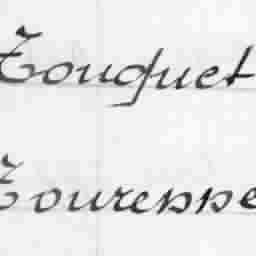 Touquet
Touresse